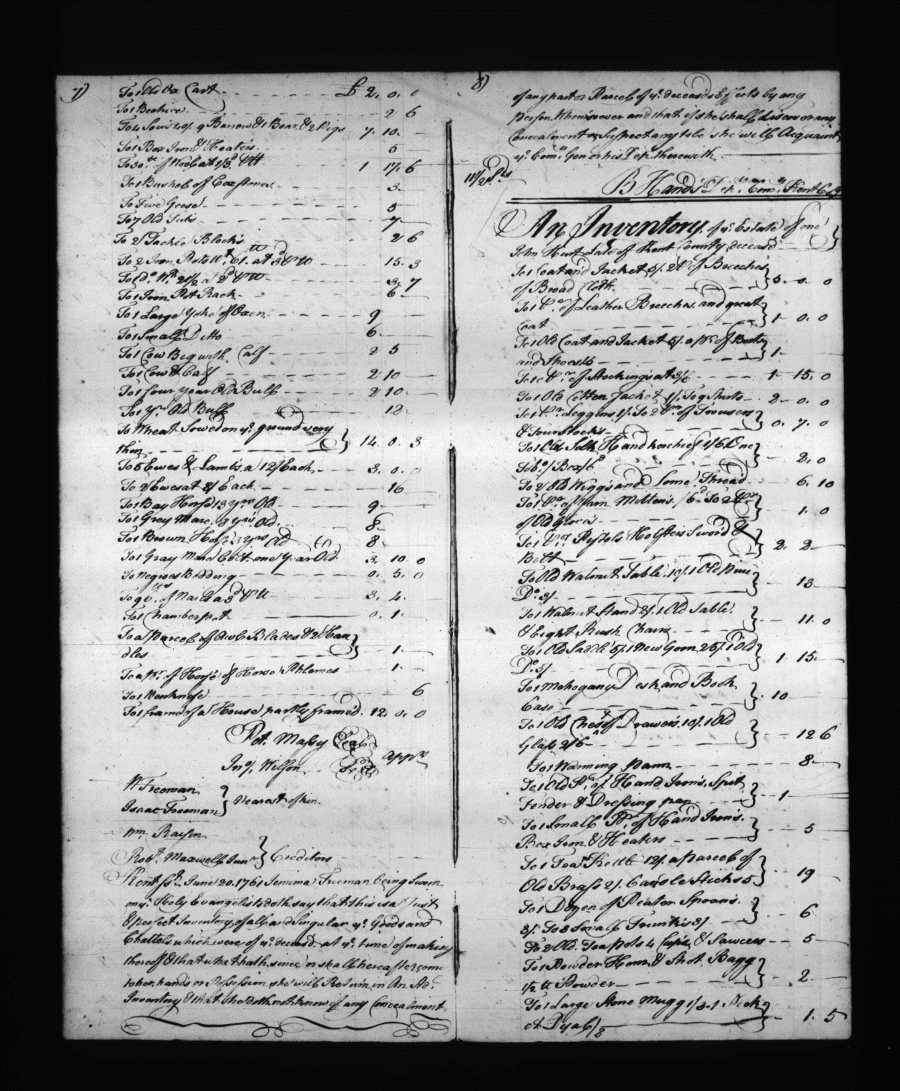 7)
To 1 Old Ox Cart £ 2. 0. 0
To 1 Beehive 2 6
To 4 Sows 1 Barrow & 1 Boar & 2 Pigs 7. 10.
To 1 Box Iron & Heaters 5
of Wool at 1 17. 6
To 1 Bushel of Coarse 3.
To Five Geese 5
To 7 Old Tubs 7
To 2 Tackle Blocks 2 6
To 2 Iron Potts Wt. 61. at 3d ℔ lb 15. 3
To Do. Wt. 21½ a 2d ℔ lb 3. 7
To 1 Iron Pot Rack 6
To 1 Large Yoke of Oxen 9
To 1 Small Ditto 6.
To 1 Cow Big with Calf 2 5
To 1 Cow & Calf 2 10
To 1 four year Old Bull 2 10
To 1 Yr. Old Bull 12
To Wheat Sowed on ye. ground very
thin } 14. 0. 3
To 5 Ewes & Lambs a 12/ Each 3. 0. 0
To 2 Ewes at 8/ Each 16
To 1 Bay Horse 13 Yrs Old 9
To 1 Grey Mare 9 yrs Old 8
To 1 Brown Horse 3 yrs Old 8
To 1 Gray Mare Colt one Year Old 3. 10. 0
To Negroes Bedding 0. 5. 0
3. 4.
To 1 Chamberpot 0. 1.
To a parcel of Blades & 2 Han
dles } 1
To a Pr. of Horse 1
To 1 6
To 1 frame of a House partly framed 12. 0. 0
Pet. Massy
Jno. Wilson } Apprs
W Freeman
Isaac Freeman } Nearest of kin
Wm Rasin
Robt. Maxwell Junr } Creditors
Kent ss. June 20. 1761 Jemima Freeman being Sworn
on ye. Holy Evangelists doth say that this is a Just
& perfect Inventory of all and Singular ye. Goods and
Chattels which were of ye. deceasd. at ye. time of making
thereof & that what hath since or shall hereafter come
to her hands or Possession she will Return in An Ad.
Inventory & that she doth not know of any Concealment
8)
of any part or Parcel of ye. deceasds Effects by any
Person Whomsoever and that if she shall discover any
Concealment or Suspect any to be she will Acquaint
ye. Comy. Genl or his Dep. therewith
B Hands Dep. Comy. Kent Coy
An Inventory of ye. Estate of one
John Hurt Late of Kent County deceasd }
To 1 Coat and Jacket & Pr of Breeches
of Broad Cloth } 5 0. 0
To 1 Pr of Leather Breeches and great
Coat } 1. 0. 0
To 1 Old Coat and Jacket 5/. a Pr of Boots
and Shoes } 1
of Stockings at 3/6 1. 15. 0
To 1 Old Cotton Jacket 1/. To 9 Shirts 2. 0. 0
To 1 Pr. Leggins 1/. To 2 Pr of Trowsers
& four Stocks } 0. 7. 0
To 1 Old Silk Handkerchief 1/6 One
Box } 2. 0
To 2 Old Wiggs and Some Thread 6. 10
To 1 Pr. of Yarn Mittens /6 To 2 Pr
of Old Gloves } 1. 0
To 1 Pr Pistols Holsters Sword &
Belt } 2. 2
To Old Walnut Table 10/. 1 Old Pine
Do. 3/. } 13
To 1 Walnut Stand 3/. 1 Old Table
& Eight Rush Chairs } 11. 0
To 1 Old Saddle 5/. 1 New Goon 25/. 1 Old
Do. 5/. } 1. 15.
To 1 Mohogany Desk and Book
Case } 10
To 1 Old Chest of Drawers 10/. 1 Old
Glass 2/6 } 12 6
To 1 Warming pann 8
To 1 Old Pr. of Hand Irons, Spit
Fender & Dressing pan } 1
To 1 Small Pr. of Hand Irons
Box Iron & Heaters } 5
To 1 Tea Kettle 12/. a parcel of
Old Brass 2/. Candle Sticks 5 } 19
To 1 Dozen of Peuter Spoons
3/. To 3 Small 3/. } 6
To 2 Old Teapots 4 Cups & Sawcers 5
To 1 Powder Horn & Shot Bagg
½ lb Powder } 2
To 1 Large Stone Mugg 1/3. 1
} 1. 5